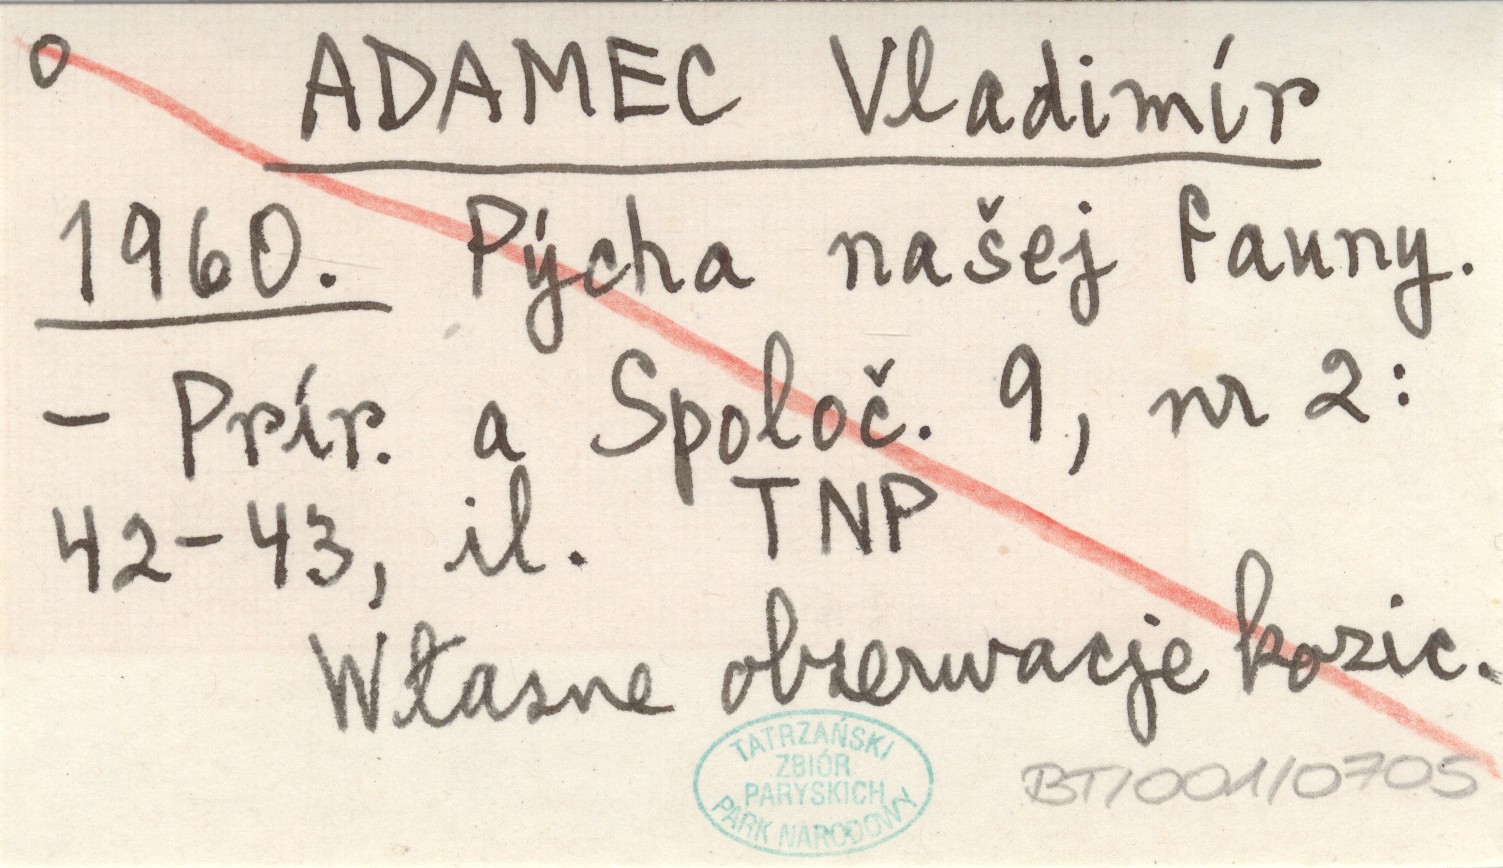 o ADAMEC Vladimír
1960. Pýcha našej fauny.
- Prír. a Spoloč. 9, nr 2:
42-43, il. TNP
Własne obserwacje kozic.
TATRZAŃSKI
ZBIÓR
PARYSKICH
PARK NARODOWY
BT/001/0705